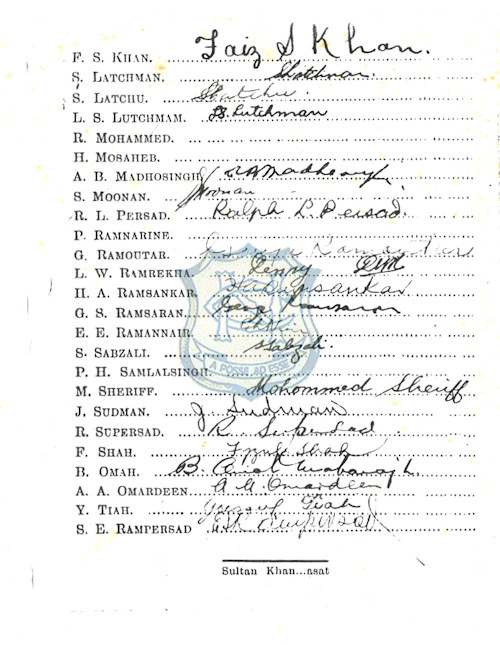 F. S. KHAN. Faiz S Khan.
S. LATCHMAN. SLatchman.
S. LATCHU. SLatchu.
L. S. LUTCHMAM. LS. Lutchman
R. MOHAMMED.
H. MOSAHEB.
A. B. MADHOSINGH
S. MOONAN. SMoonan
R. L. PERSAD. Ralph L. Persad.
P. RAMNARINE.
G. RAMOUTAR. Ramoutar
L. W. RAMREKHA. Lenny
H. A. RAMSANKAR. HaRamsankar
G. S. RAMSARAN. George Ramsaran
E. E. RAMANNAIR.
S. SABZALI. SSabzali
P. H. SAMLALSINGH.
A POSSE AD ESSE
M. SHERIFF. Mohommed Sheriff
J. SUDMAN. J Sudman
R. SUPERSAD. R. Supersad.
F. SHAH. Shah
B. OMAH. B. Omah Maharaj
A. A. OMARDEEN. A A. Omardeen
Y. TIAH. Yussuf Tiah
S. E. RAMPERSAD Rampersad
Sultan Khan...asat